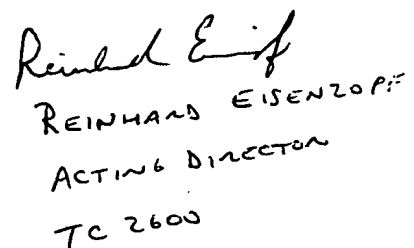 Reinhard
REINHARD EISENZOPF
ACTING DIRECTOR
TC 2600